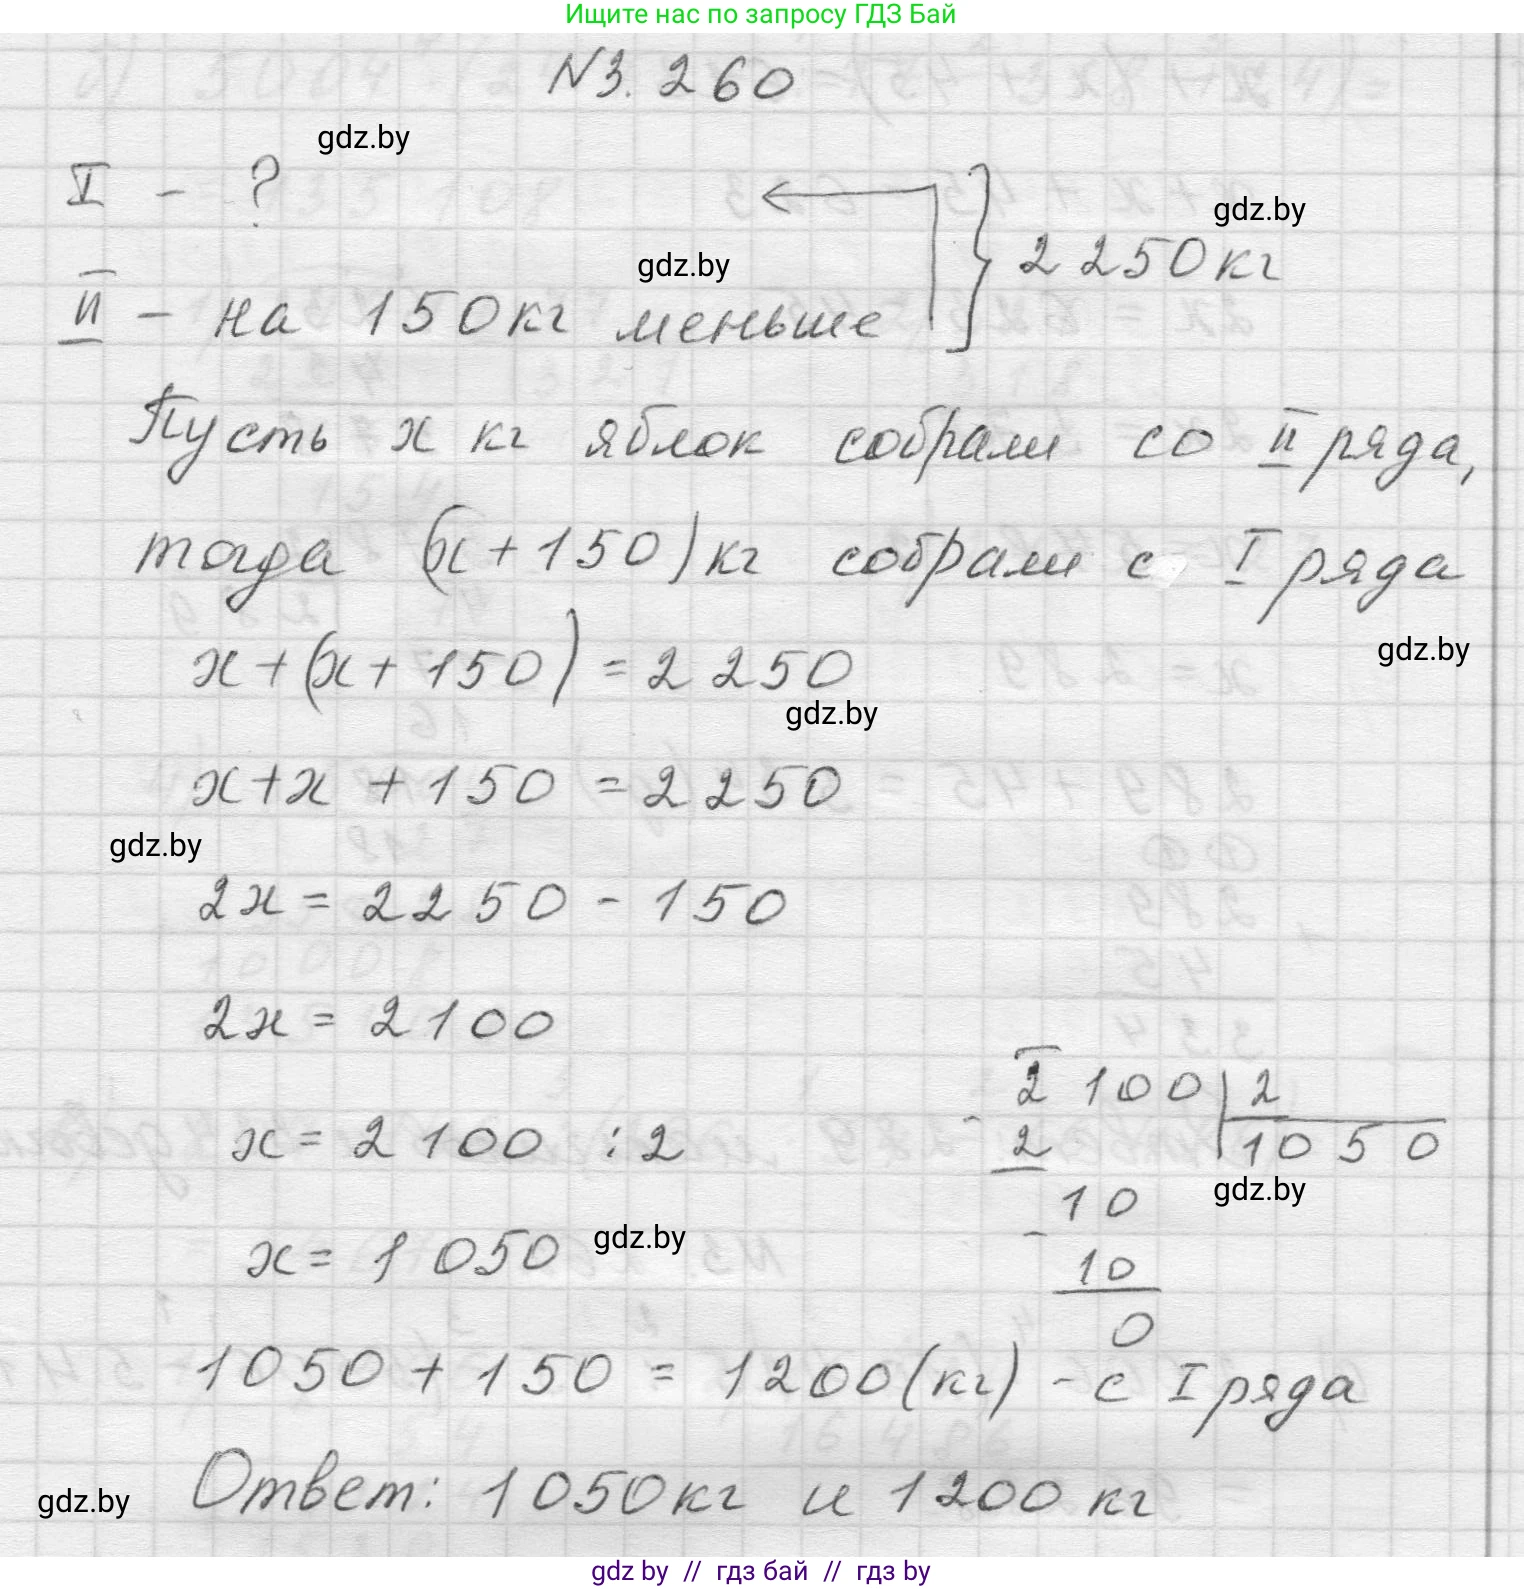 Ищите нас по запросу ГДЗ Бай
N3.260
gdz.by
I - ?
gdz.by
gdz.by
} 2250кг
II - на 150кг меньше
Пусть x кг яблок собрали со II ряда,
тогда (x+150)кг собрали с I ряда
x+(x+150)=2250
gdz.by
gdz.by
x+x+150=2250
gdz.by
2x=2250-150
2x=2100
2100|2
x=2100:2
- 2
1050
gdz.by
- 10
x=1050
gdz.by
10
0
1050+150=1200(кг)-с I ряда
Ответ: 1050кг и 1200 кг
gdz.by
gdz by // гдз бай // гдз by